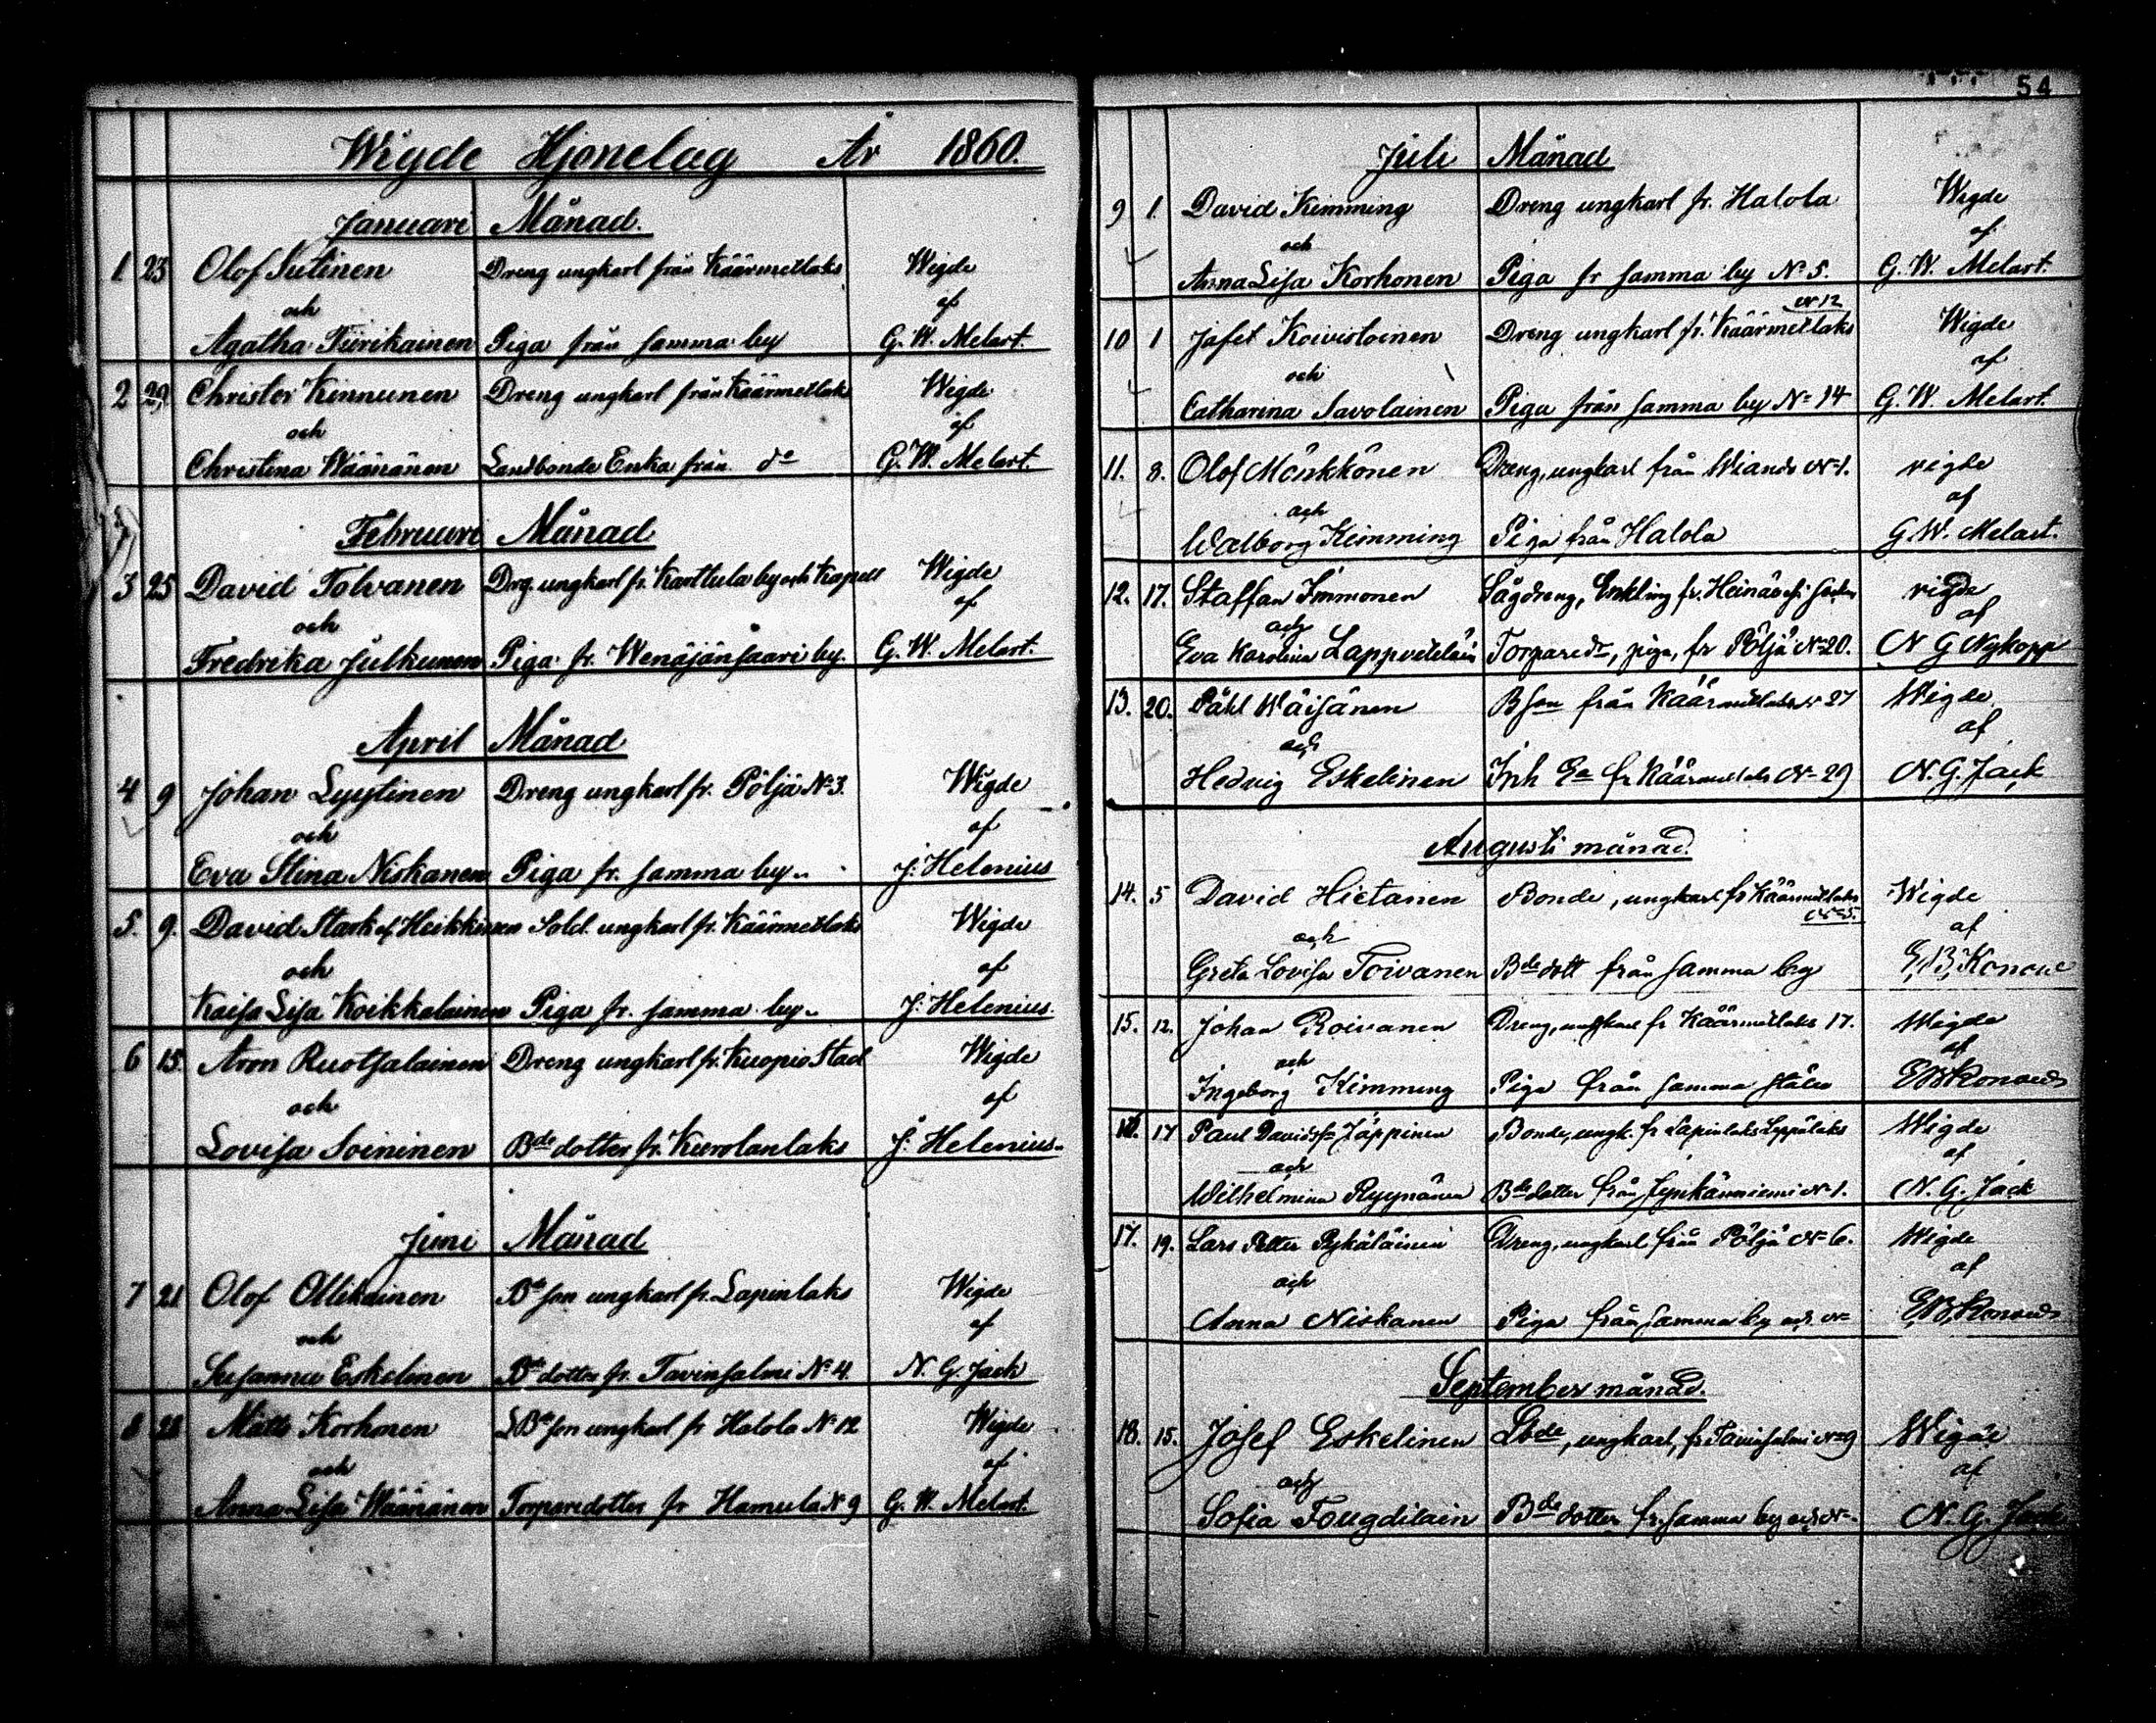 Wigde Hjonelag År 1860.
Januari Månad.
1 23 Olof Sutinen Dreng ungkarl från Käärmetlaks Wigde
och af
Agatha Tiirikainen Piga från samma by G. W. Melart.
2 29 Christer Kinnunen Dreng ungkarl från Käärmetlaks Wigde
och af
Christina Wäänänen Landbonde Enka från do G. W. Melart.
Februari Månad
3 25 David Tolvanen Drg. ungkarl fr. Karttula by och Kapell Wigde
och af
Fredrika Julkunen Piga fr. Wenäjänsaari by. G. W. Melart.
April Månad
4 9 Johan Lyytinen Dreng ungkarl fr. Pöljä No 3. Wigde
och af
Eva Stina Niskanen Piga fr. samma by J: Helenius
5. 9. David Stark el. Heikkinen Sold. ungkarl fr. Käärmetlaks Wigde
och af
Kaisa Lisa Koikkalainen Piga fr. samma by J: Helenius.
6 15. Aron Ruotsalainen Dreng ungkarl fr. Kuopio Stad Wigde
och af
Lovisa Soininen Bde dotter fr. Kurolanlaks J: Helenius.
Juni Månad
7 21 Olof Ollikainen Bde son ungkarl fr. Lapinlaks Wigde
och af
Susanna Eskelinen Bde dotter fr. Tavinsalmi No 4. N. G. Jack
8 28 Matts Korhonen LBde son ungkarl fr Halola No 12 Wigde
och af
Anna Lisa Wäänänen Torparedotter fr Hamula N 9 G. W. Melart.
54
Juli Månad
9 1. David Kimming Dreng ungkarl fr. Halola Wigde
och af
Anna Lisa Korhonen Piga fr samma by No 5. G. W. Melart.
No 12
10 1 Jafet Koivistoinen Dreng ungkarl fr. Käärmetlaks Wigde
och af
Catharina Savolainen Piga från samma by No 14 G. W. Melart.
11. 8. Olof Mönkkönen Dreng, ungkarl från Wiands No 1. vigde
och af
Walborg Kimming Piga från Halola G. W. Melart.
12. 17. Staffan Immonen Sågdreng, Enkling fr. vigde
och af
Eva Karolina Lappvetelain Torpare dr, piga, fr Pöljä No 20. N G Nykopp
13. 20. Påhl Wäisänen Bson från Käärmetlaks No 27 Wigde
och af
Hedvig Eskelinen Inh Ea fr Käärmetlaks No 29 N. G. Jack
Augusti månad.
14. 5 David Hietanen Bonde, ungkarl fr Käärmetlaks Wigde
No 5.
och af
Greta Lovisa Toivanen Bde dott från samma by
15. 12. Johan Roivanen Dreng, ungkarl fr Käärmetlaks 17. Wigde
och af
Ingeborg Kimming Piga från samma ställe
16. 17 Paul Davidsson Jäppinen Bonde, ungk. fr Lapinlaks Leppälaks Wigde
och af
Wilhelmina Ryynänen Bde dotter från No 1. N. G. Jack
17. 19. Lars Petter Pykäläinen Dreng, ungkarl från Pöljä No 6. Wigde
och af
Anna Niskanen Piga från samma by och No
September månad.
18. 15. Josef Eskelinen Lbde, ungkarl, fr Tavinsalmi No 9 Wigde
och af
Sofia Fougdilain Bde dotter fr. samma by och No. N. G. Jack